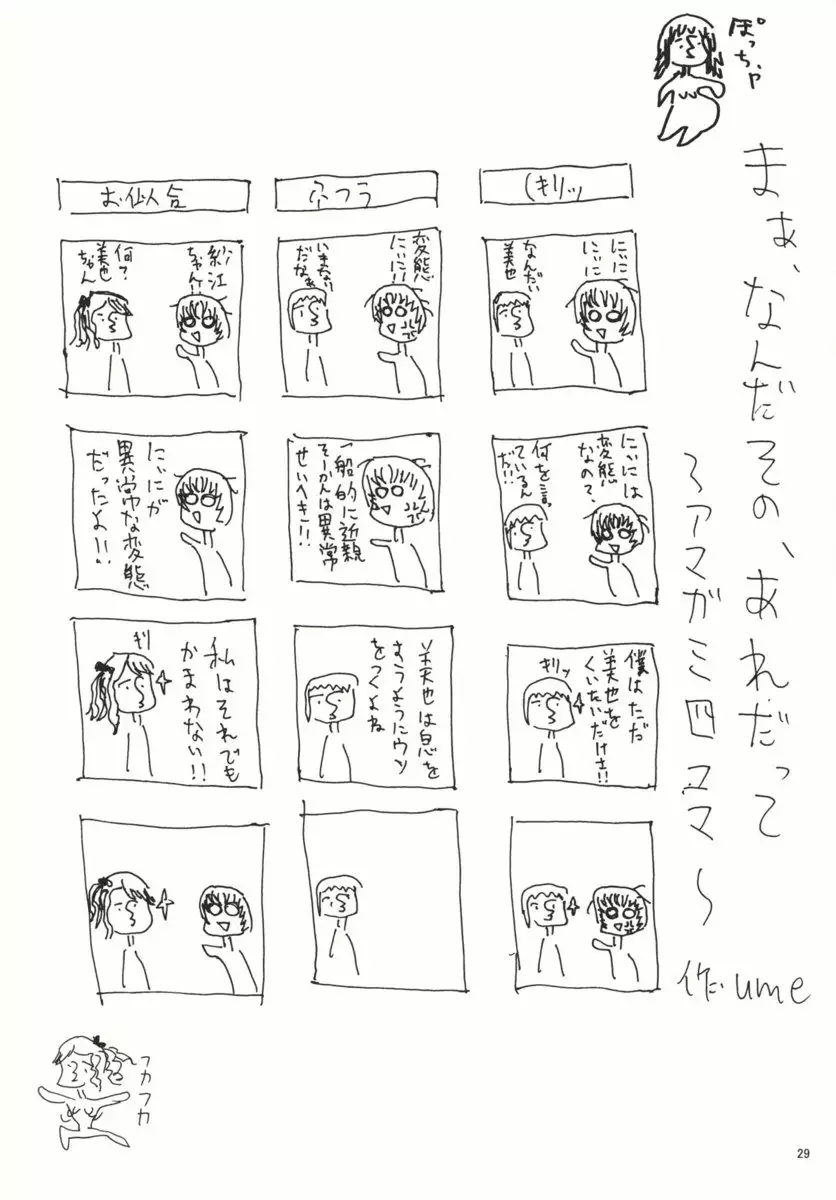 ぽっちゃ
まぁ、なんだその、あれだって
〜アマガミ四コマ〜
作:ume
(キリッ
にぃに
にぃに
なんだい
美也
にぃには
変態
なの?
何を言っ
ているん
だ!!
僕はただ
美也を
くいたいだけさ!!
キリッ
ふつう
変態
にぃに!!
いまさら
だなぁ
一般的に近親
そーかんは異常
せいへき!!
美也は息を
すうようにウソ
をつくよね
お似合
紗江
ちゃん!!
何?
美也
ちゃん
にぃにが
異常な変態
だったよ!!
私はそれでも
かまわない!!
キリ
フカフカ
29